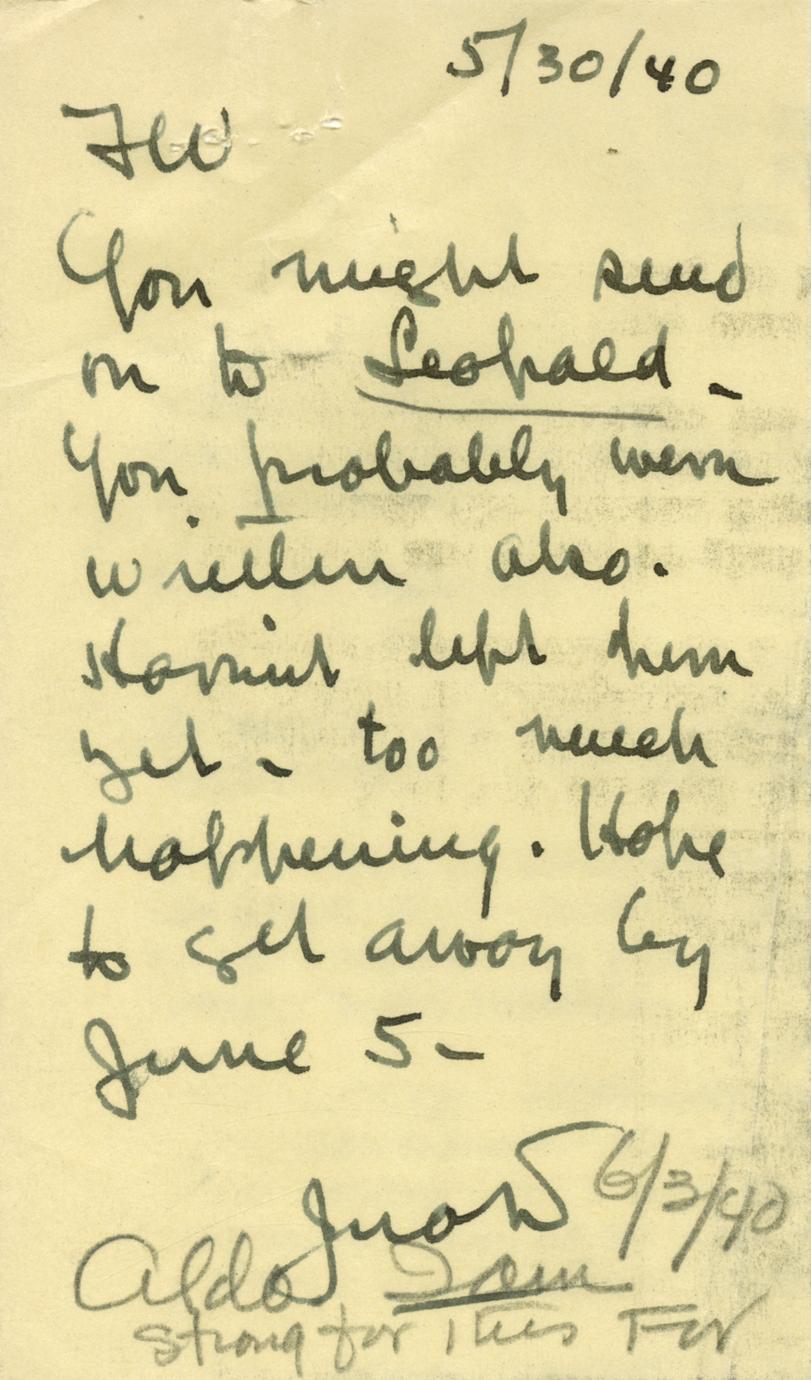 5/30/40
FW
You might send
on to Leopold -
You probably were
written also.
Haven't left here
yet - too much
happening. Hope
to get away by
June 5-
6/3/40
Aldo I am
strong for this